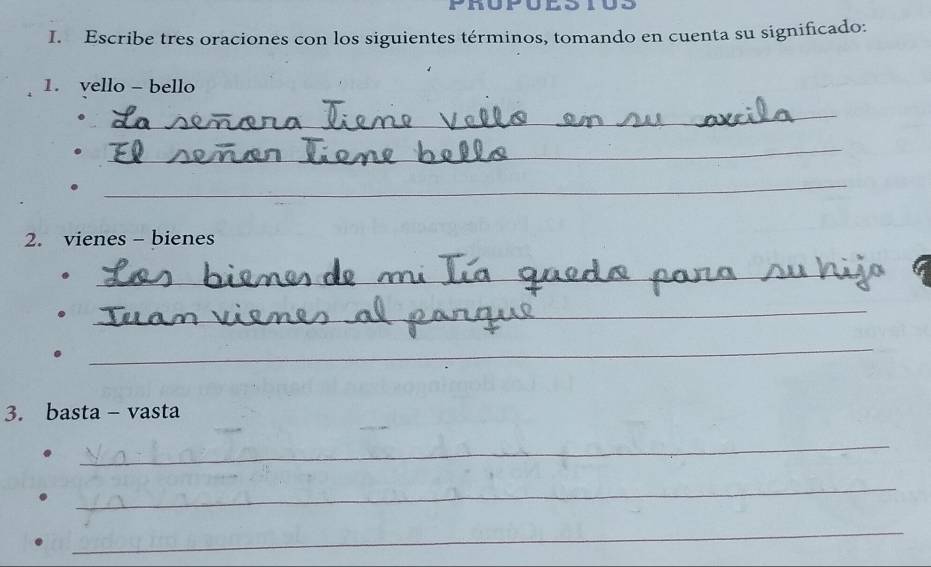 PROPUESTOS
I. Escribe tres oraciones con los siguientes términos, tomando en cuenta su significado:
1. vello - bello
• La señora tiene vello en su axcila
• El señor tiene bello
•
2. vienes - bienes
• Los bienes de mi Tía queda para su hija
• Juan vienes al parque
•
3. basta - vasta
• Ya
• Ya
•